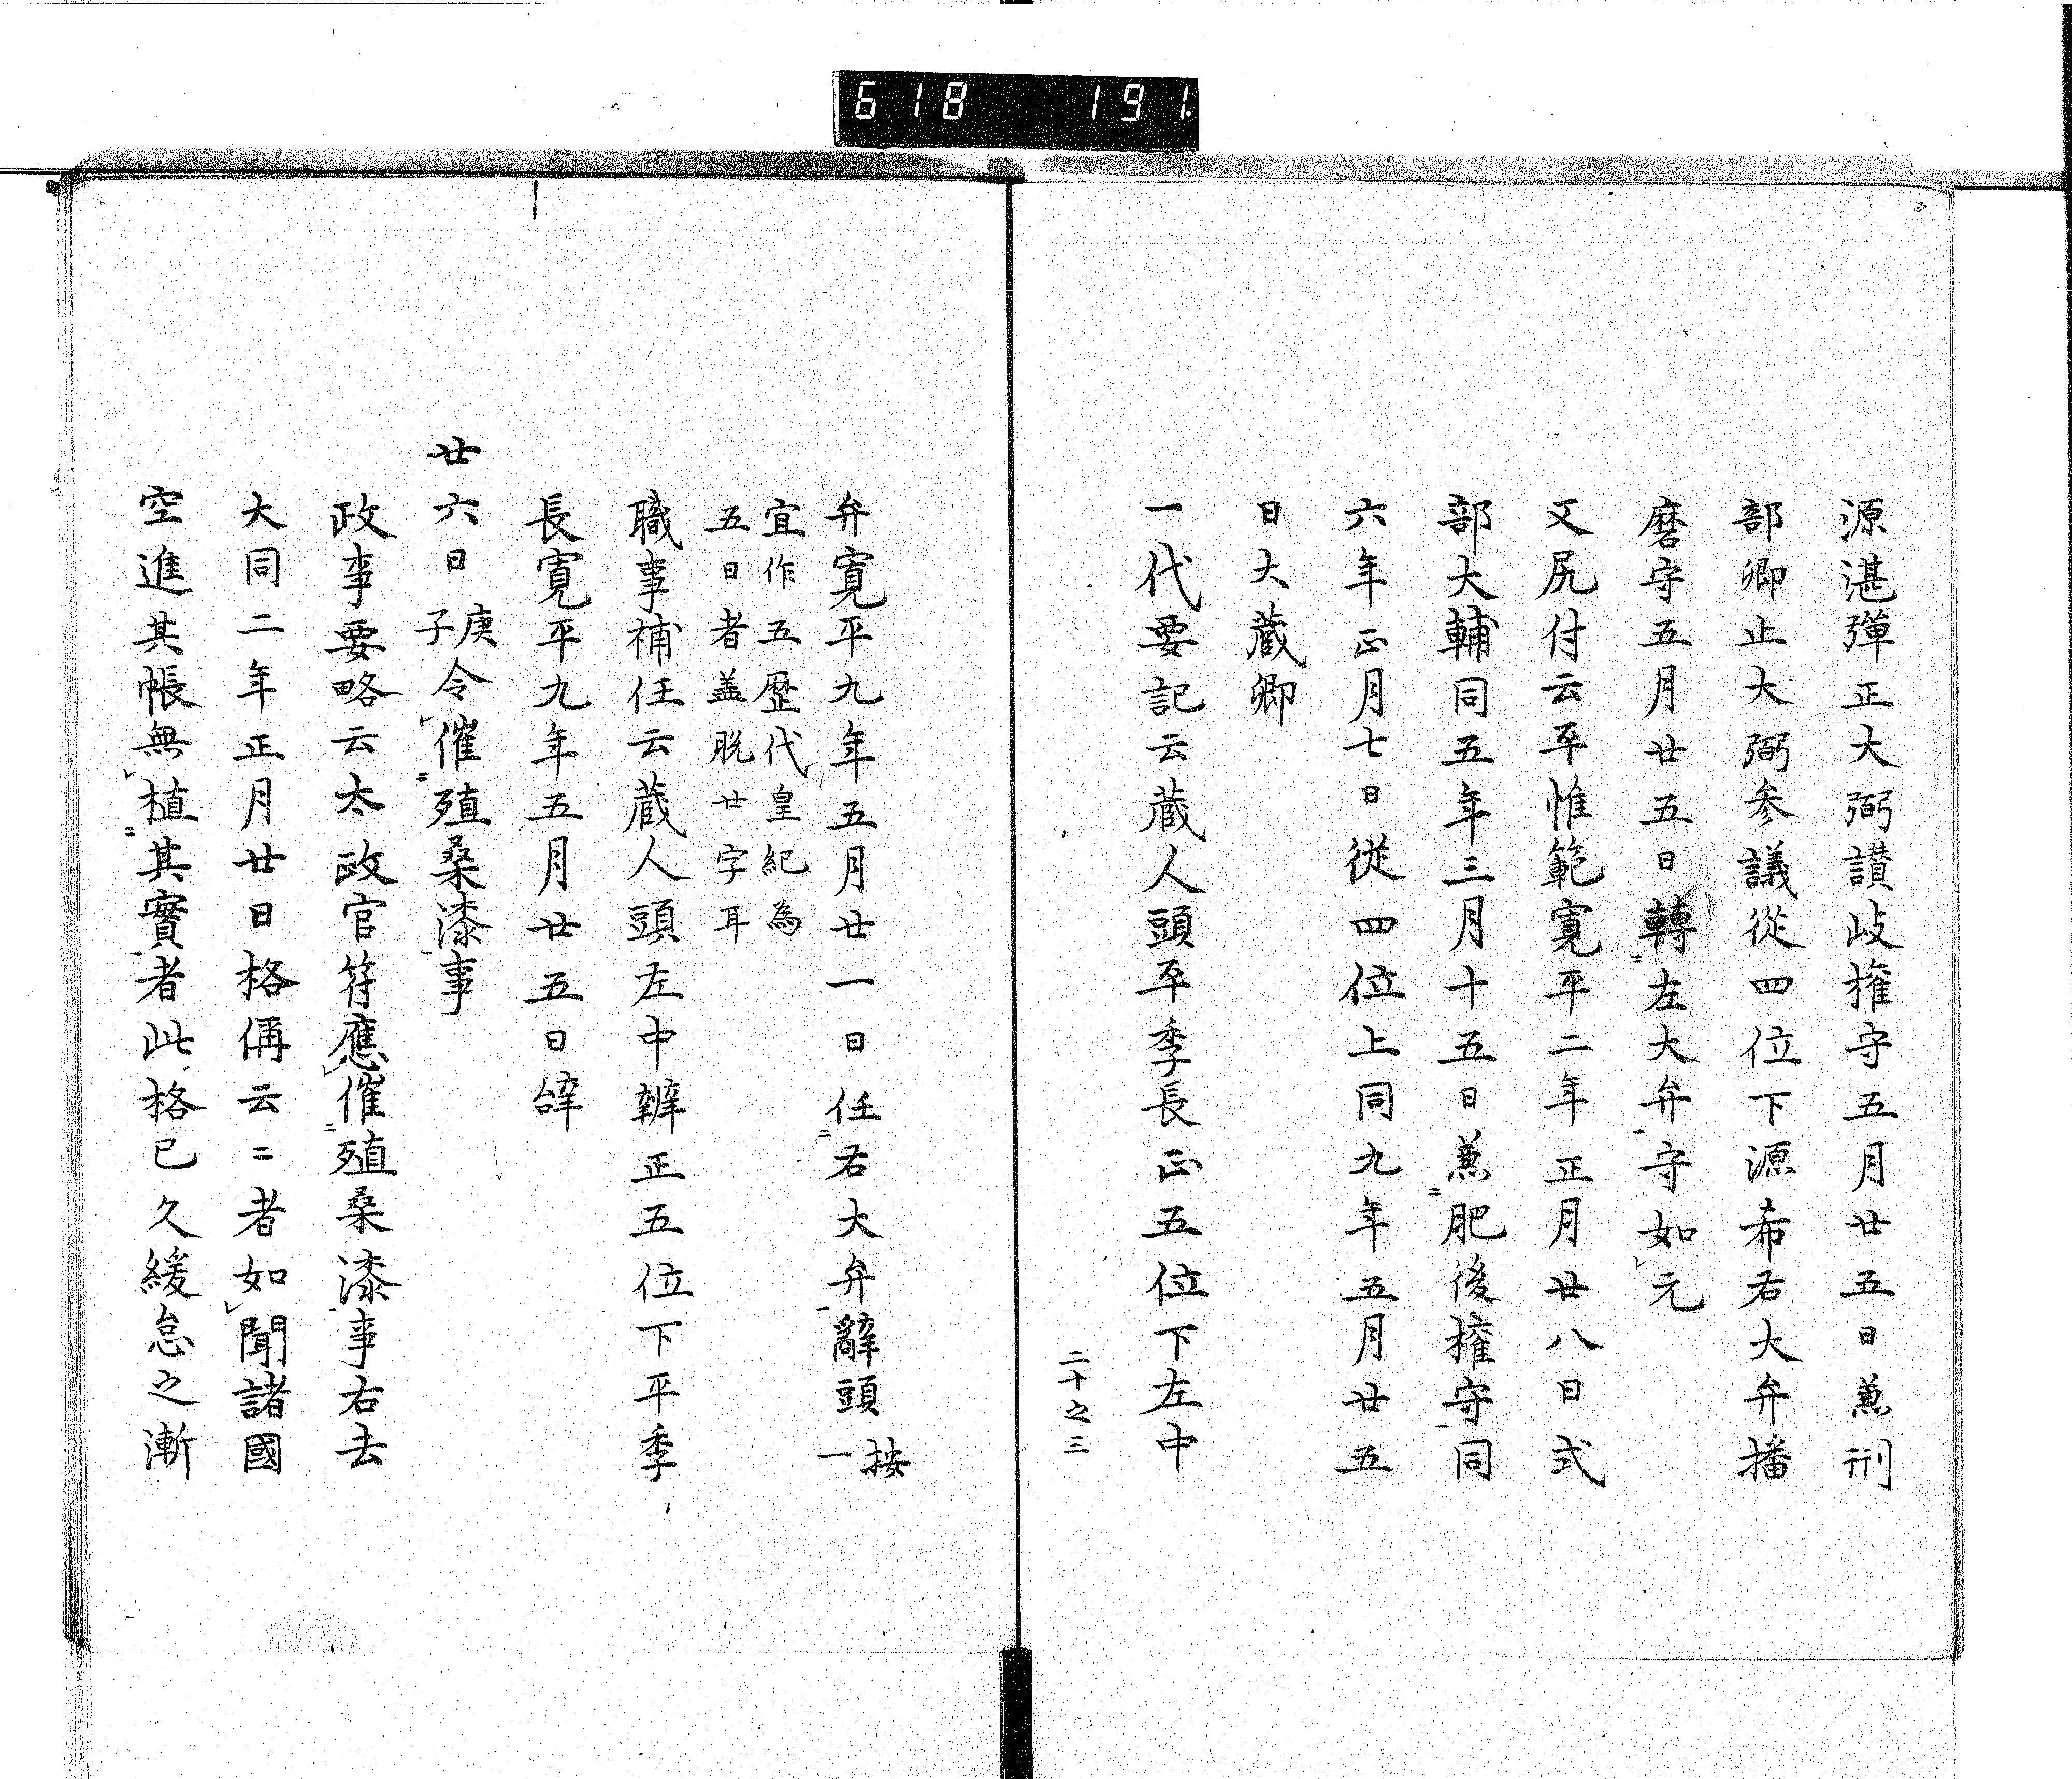 618 191.
源湛彈正大弼讃岐権守五月廿五日兼刑
部卿止大弼参議從四位下源希右大弁播
磨守五月廿五日轉〻左大弁守如元
又尻付云平惟範寛平二年正月廿八日式
部大輔同五年三月十五日兼肥後権守同
六年正月七日從四位上同九年五月廿五
日大蔵卿
一代要記云蔵人頭平季長正五位下左中
二十之三
弁寛平九年五月廿一日任右大弁辭頭按一
宜作五歴代皇紀為
五日者盖脱廿字耳
職事補任云蔵人頭左中辨正五位下平季
長寛平九年五月廿五日辞
廿六日庚子令催殖桑漆事
政事要略云太政官符應催殖桑漆事右去
大同二年正月廿日格偁云〻者如聞諸國
空進其帳無植其實者此格已久緩怠之漸